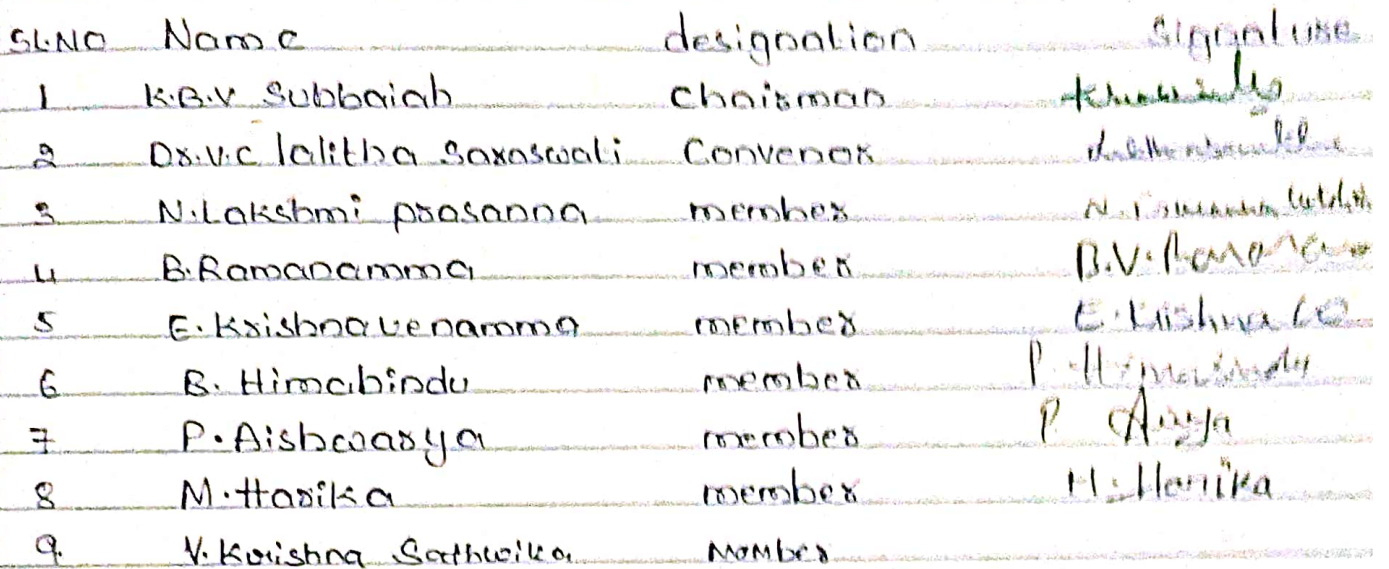 SL.NO Name designation Signature
1 K.B.V Subbaiah Chairman
2 Dr.V.C lalitha Saraswati Convenor
3 N.Lakshmi prasanna member
4 B.Ramanamma member B.V.
5 E.Krishnavenamma member E.
6 B.Himabindu member P.
7 P.Aishwarya member P
8 M.Harika member M.Harika
9. V.Krishna Sathwika Member